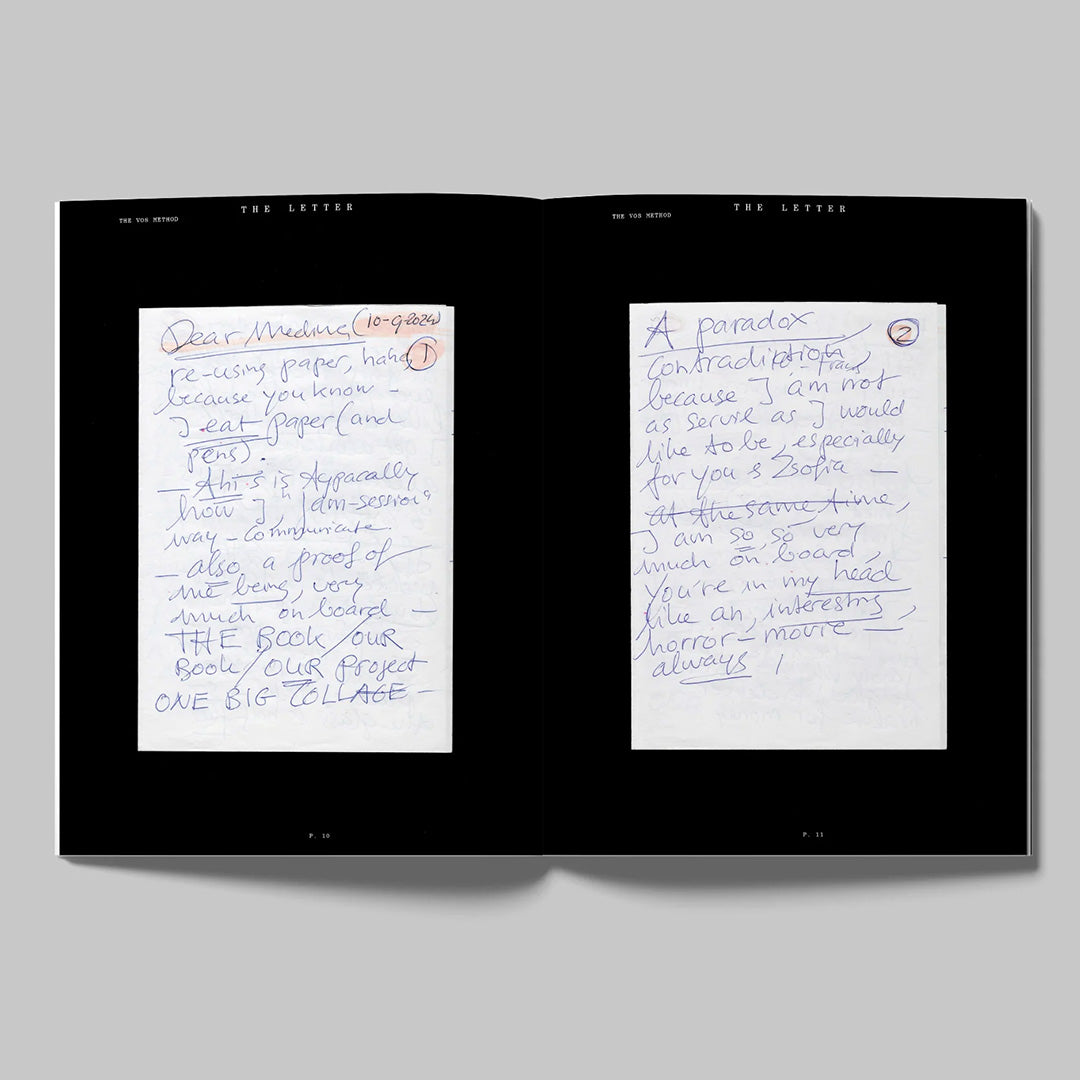 THE LETTER
THE VOS METHOD
Dear (10-9-2024)
re-using paper, haha ①
because you know –
I eat paper (and
pens).
– this is typacally
how I, jam-sessions
way – communicate.
– also, a proof of
me being, very
much on board –
THE BOOK / OUR
BOOK / OUR project
ONE BIG COLLAGE –
P. 10
THE LETTER
THE VOS METHOD
A paradox ②
contradiction,
because I am not
as servie as I would
like to be, especially
for you & Zsofia –
at the same time,
I am so, so very
much on board,
you're in my head
like an, interesting,
horror-movie –
always !
P. 11